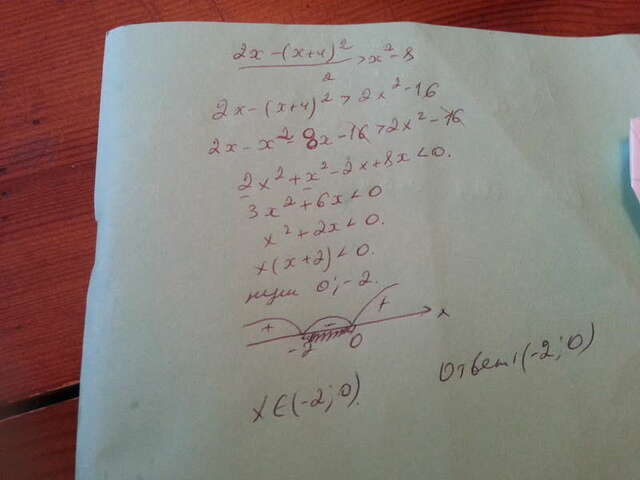 (2x-(x+4)²)/2 > x²-8
2x-(x+4)² > 2x²-16
2x-x²-8x-16 > 2x²-16
2x²+x²-2x+8x<0.
3x²+6x<0
x²+2x<0.
x(x+2)<0.
нули 0; -2.
+ - + x
-2 0
x∈(-2;0). Ответ: (-2;0)